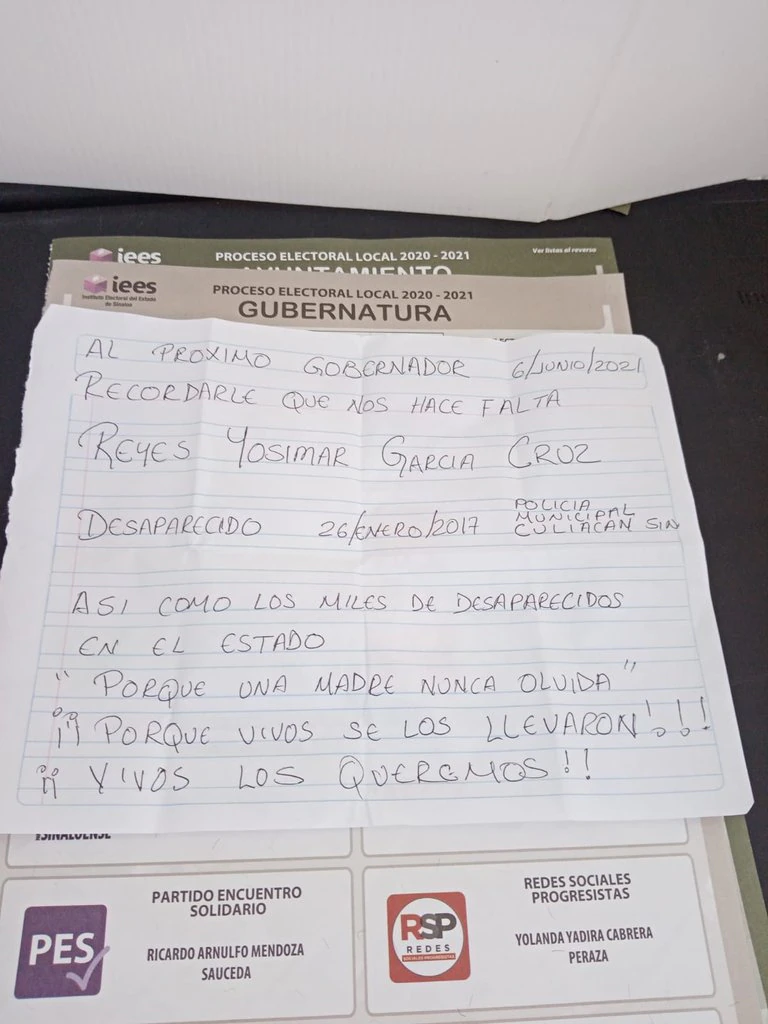 iees
PROCESO ELECTORAL LOCAL 2020 - 2021
Ver listas al reverso
AYUNTAMIENTO
iees
Instituto Electoral del Estado
de Sinaloa
PROCESO ELECTORAL LOCAL 2020 - 2021
GUBERNATURA
AL PROXIMO GOBERNADOR 6/JUNIO/2021
RECORDARLE QUE NOS HACE FALTA
REYES YOSIMAR GARCIA CRUZ
DESAPARECIDO 26/ENERO/2017 POLICIA
MUNICIPAL
CULIACAN SIN
ASI COMO LOS MILES DE DESAPARECIDOS
EN EL ESTADO
"PORQUE UNA MADRE NUNCA OLVIDA"
¡¡ PORQUE VIVOS SE LOS LLEVARON!!!
¡¡ VIVOS LOS QUEREMOS!!
SINALOENSE
PES
PARTIDO ENCUENTRO
SOLIDARIO
RICARDO ARNULFO MENDOZA
SAUCEDA
RSP
REDES
SOCIALES PROGRESISTAS
REDES SOCIALES
PROGRESISTAS
YOLANDA YADIRA CABRERA
PERAZA